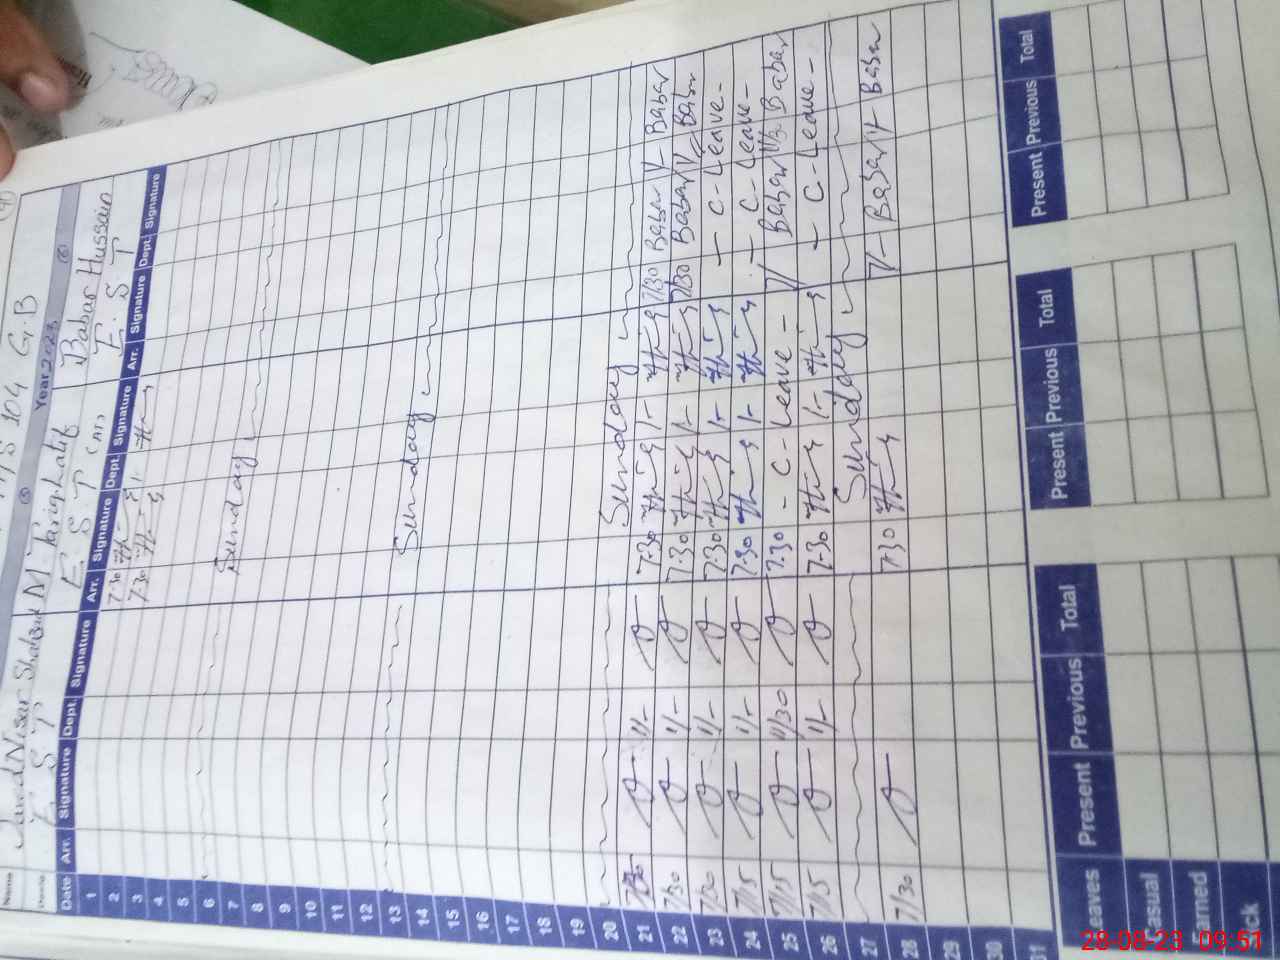 104 G.B
Year 2023
Name Javid Nisar M. Tariq Latif Babar Hussain
E S T E. S. T (AT) E. S T
Date Arr. Signature Dept. Signature Arr. Signature Dept. Signature Arr. Signature Dept. Signature
1
2 7-30
3 7.30
4
5
6 Sunday
7
8
9
10
11
12
13 Sunday
14
15
16
17
18
19
20 Sunday
21 7/30 1/- 7.30 1/- 7/30 Babar 1/- Babar
22 7/30 1/- 7.30 1/- 7/30 Babar 1/- Babar
23 7/30 1/- 7.30 1/- - C-Leave -
24 7/15 1/- 7.30 1/- - C-Leave -
25 7/15 11/30 7.30 - C-Leave - Babar Babar
26 7/15 1/- 7.30 1/- - C-Leave -
27 Sunday
28 7/30 7.30 7/- Babar Babar
29
30
31
Leaves Present Previous Total Present Previous Total Present Previous Total
Casual
Earned
Sick
28-08-23 09:51